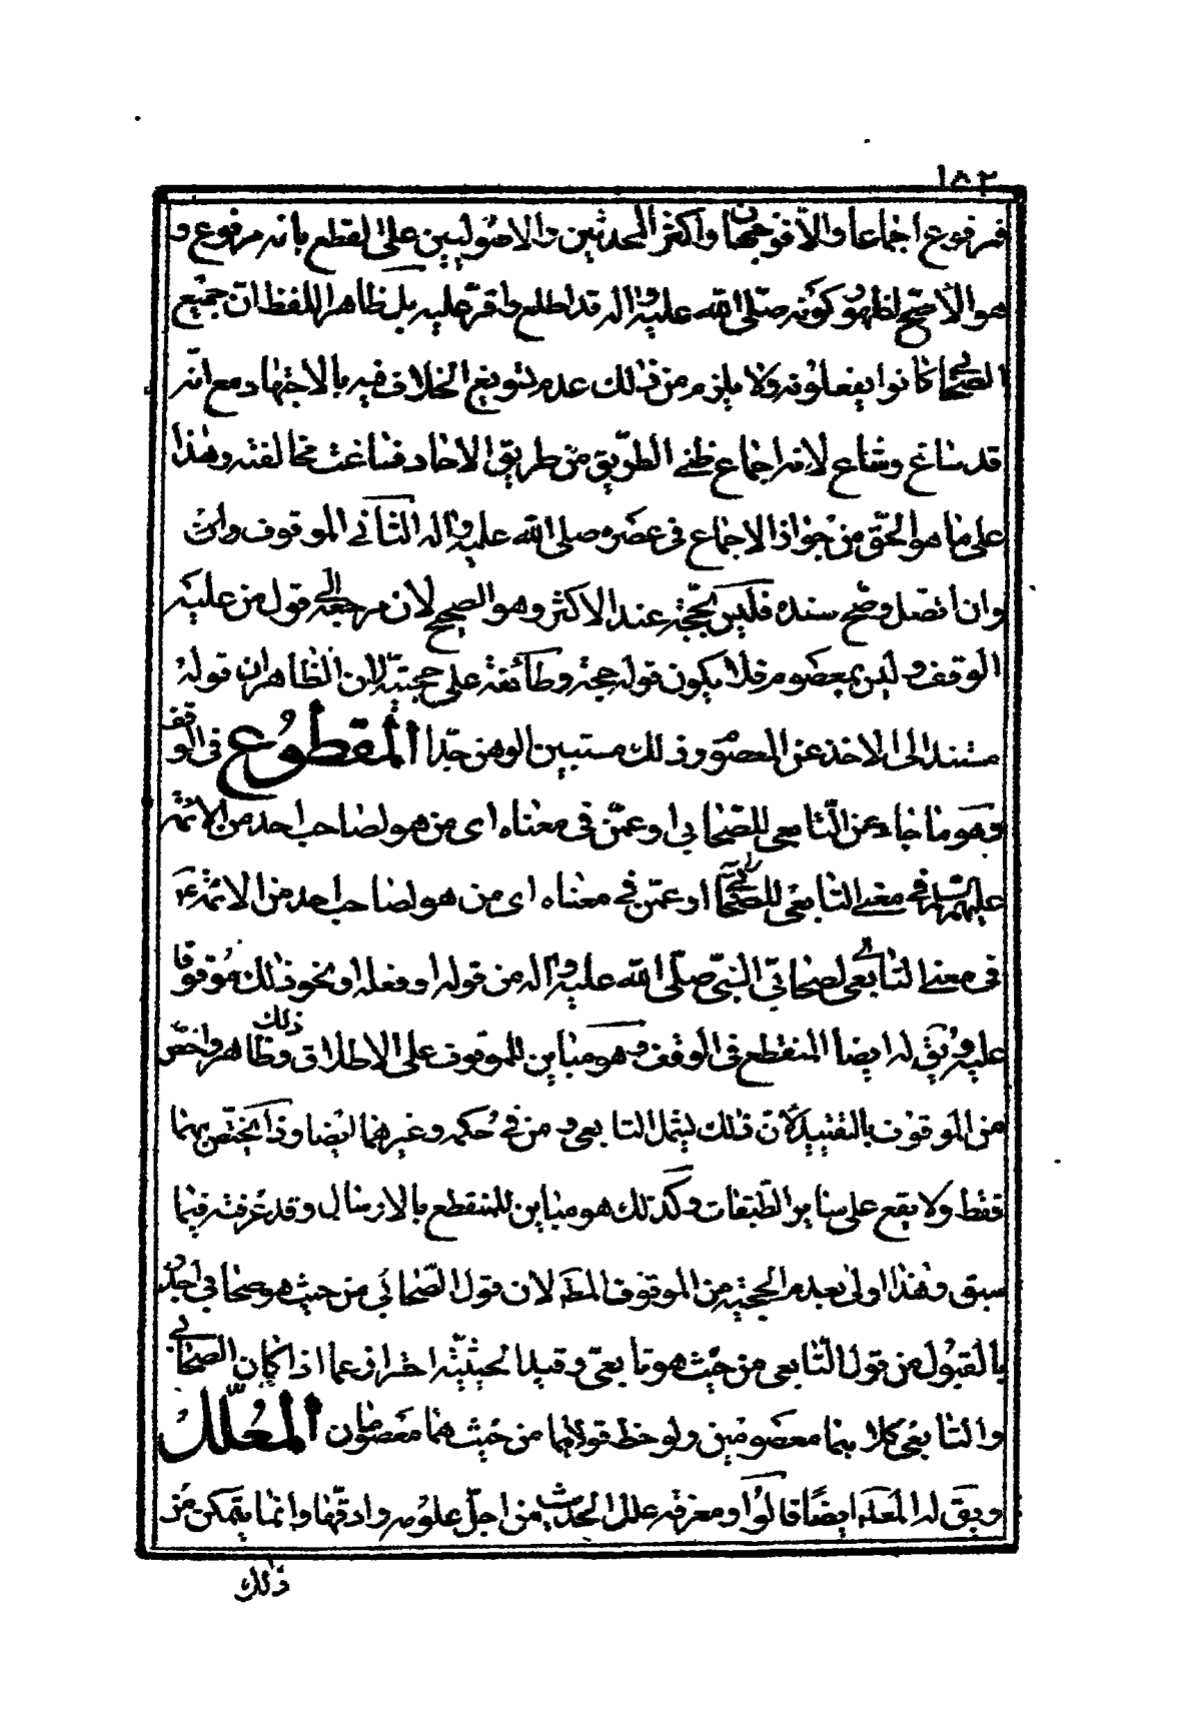 ١٨٢
فمرفوع اجماعا والا فوجهان واكثر المحدثين والاصوليين على القطع بانه مرفوع و
هو الاصح لظهور كونه صلى الله عليه واله قد اطلع واقر عليه بل ظاهر اللفظ ان جميع
الصحابة كانوا يفعلونه ولا يلزم من ذلك عدم تسويغ الخلاف فيه بالاجتهاد مع انه
قد ساغ وشاع لانه اجماع ظني الطريق من طريق الاحاد فساغت مخالفته وهذا
على ما هو الحق من جواز الاجماع في عصره صلى الله عليه واله الثاني الموقوف
وان اتصل وصح سنده فليس بحجة عند الاكثر وهو الصحيح لان مرجعه الى قول من عليه
الوقف وليس بمعصوم فلا يكون قوله حجة وطائفة على حجيته لان الظاهر ان قوله
مستند الى الاخذ عن المعصوم وذلك مستبين الوهن جدا المقطوع في الوقف
وهو ما جاء عن التابعي للصحابي او عمن في معناه اي من هو لصاحب احد من الائمة
عليهم السلام في معنى التابعي للصحابي او عمن في معناه اي من هو لصاحب احد من الائمة ع
في معنى التابعي لصحابي النبي صلى الله عليه واله من قوله او فعله او نحو ذلك موقوفا
عليه ويق له ايضا المنقطع في الوقف وهو مباين للموقوف على الاطلاق وذلك ظاهر واخص
من الموقوف بالتقييد لان ذلك يشمل التابعي ومن في حكمه وغيرهما ايضا وذا يختص بهما
فقط ولا يقع على ساير الطبقات وكذلك هو مباين للمنقطع بالارسال وقد عرفته فيما
سبق وهذا اولى بعدم الحجية من الموقوف المط لان قول الصحابي من حيث هو صحابي اجدر
بالقبول من قول التابعي من حيث هو تابعي وقيد الحيثية احتراز عما اذا كان الصحابي
والتابعي كلاهما معصومين ولوحظ قولاهما من حيث هما معصومان المعلل
ويق له المعل ايضا قالوا ومعرفة علل الحديث من اجل علومه وادقها وانما يتمكن من
ذلك